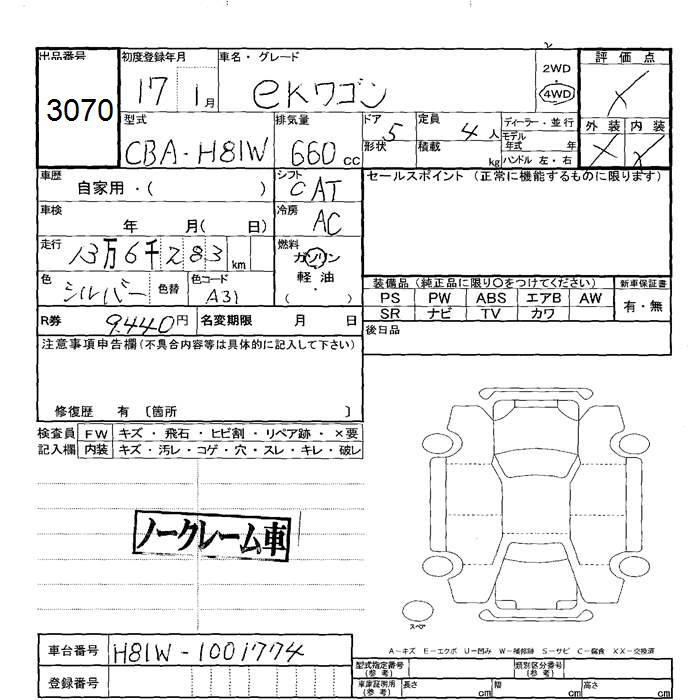 出品番号
3070
初度登録年月
17 1月
車名・グレード
eKワゴン
2WD
4WD
評価点
外装 内装
型式
CBA-H81W
排気量
660cc
ドア 5
形状
定員 4人
積載 kg
ディーラー・並行
モデル
年式 年
ハンドル 左・右
車歴
自家用・( )
シフト
CAT
セールスポイント (正常に機能するものに限ります)
車検
年 月( 日)
冷房
AC
走行
13万6千283km
燃料
ガソリン
軽油
( )
色
シルバー
色替
色コード
A31
装備品 (純正品に限り〇をつけてください)
新車保証書
PS PW ABS エアB AW
SR ナビ TV カワ
有・無
R券 9,440円 名変期限 月 日
後日品
注意事項申告欄 (不具合内容等は具体的に記入して下さい)
修復歴 有 〔箇所 〕
検査員 FW キズ・飛石・ヒビ割・リペア跡・×要
記入欄 内装 キズ・汚レ・コゲ・穴・スレ・キレ・破レ
ノークレーム車
スペア
A-キズ E-エクボ U-凹み W-補修跡 S-サビ C-腐食 XX-交換済
車台番号 H81W-1001774
登録番号
型式指定番号
(参考)
類別区分番号
(参考)
車庫証明用
(参考)
長さ cm 幅 cm 高さ cm